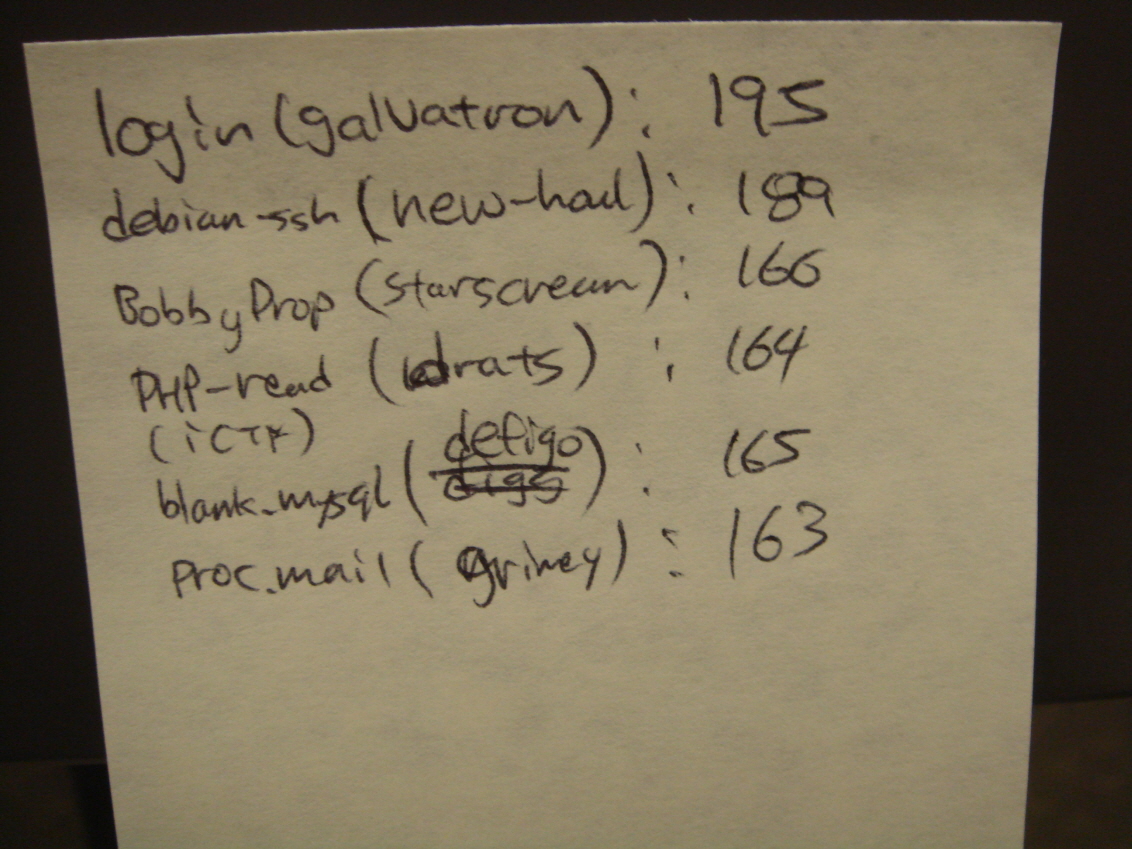 login (galvatron): 195
debian-ssh (new-hail): 189
BobbyDrop (starscream): 166
PHP-read (drats) : 164
(iCTF)
blank-mysql (defigo) : 165
proc.mail (grimey) : 163